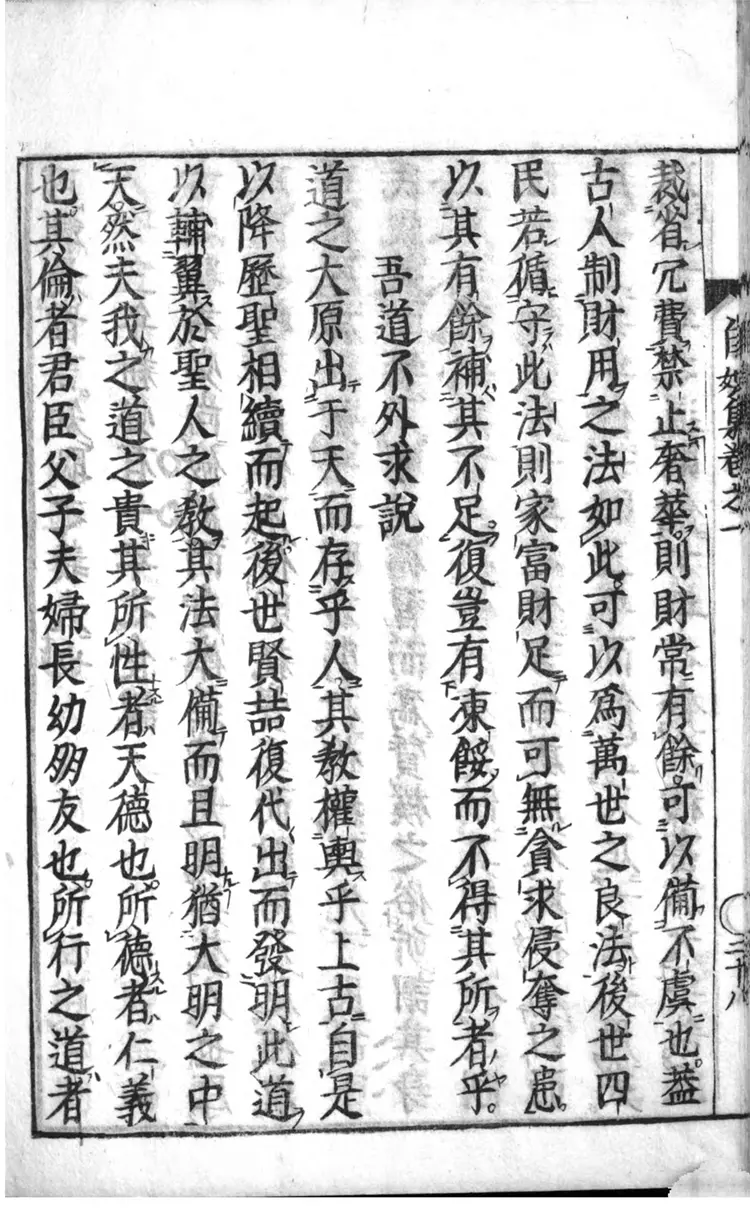 裁省冗費禁止奢華則財常有餘可以備不虞也葢
古人制財用之法如此可以爲萬世之良法後世四
民若循守此法則家富財足而可無貪求侵奪之患
以其有餘補其不足復豈有凍餒而不得其所者乎
吾道不外求説
道之大原出于天而存乎人其教權輿乎上古自是
以降歷聖相續而起後世賢喆復代出而發明此道
以輔翼於聖人之教其法大備而且明猶大明之中
天然夫我之道之貴其所性者天德也所德者仁義
也其倫者君臣父子夫婦長幼朋友也所行之道者
集卷之一
三十八